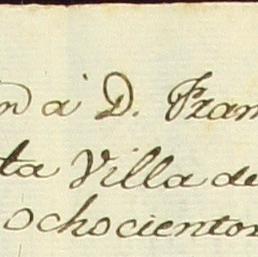 n a D. Fran
ta Villa de
ochocientos